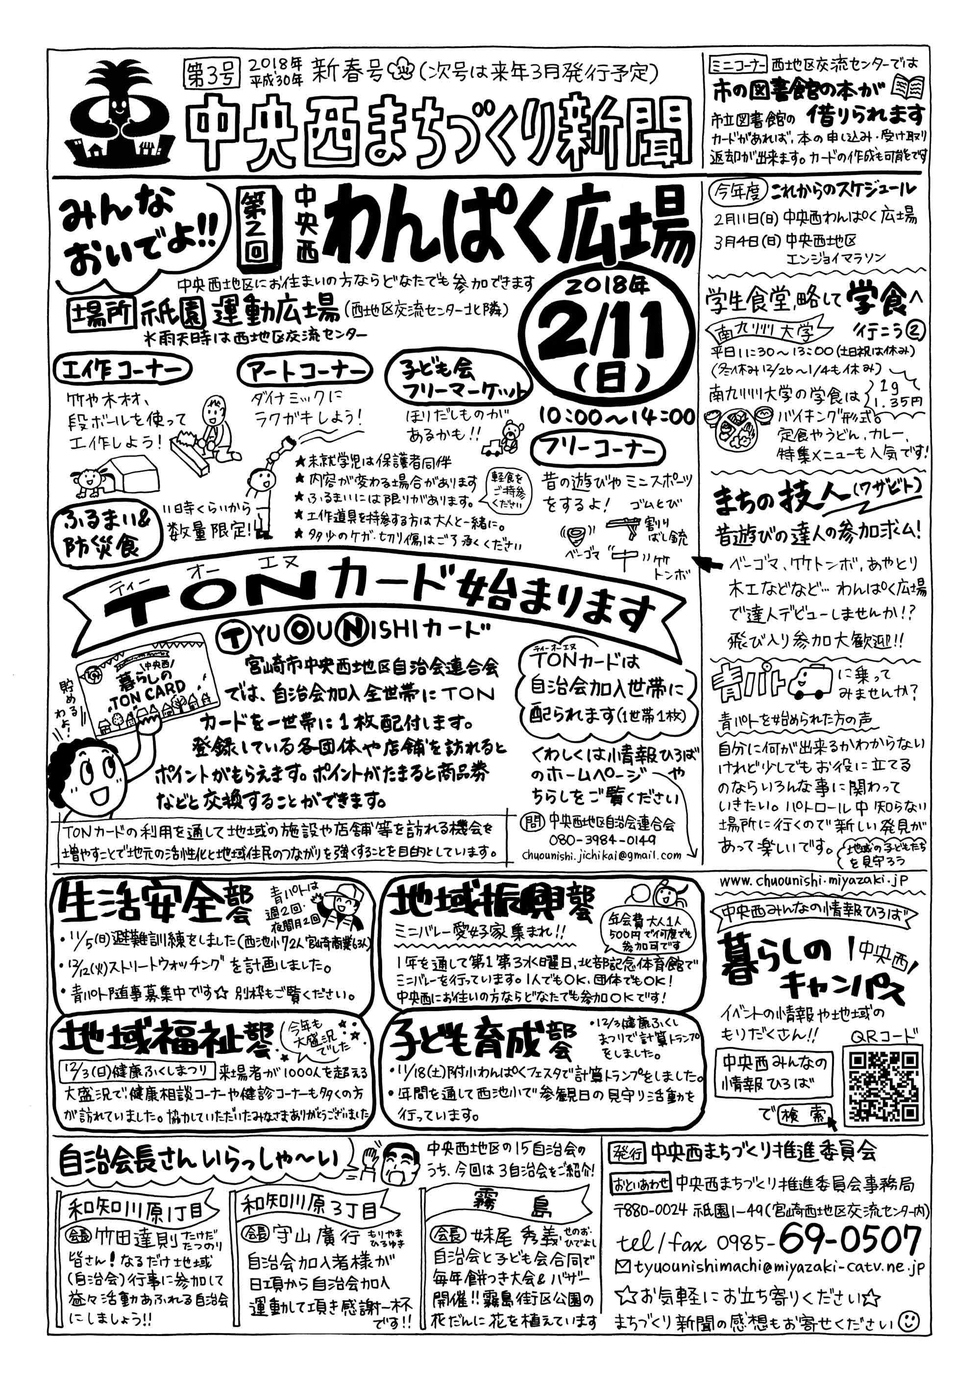 第3号 2018年 平成30年 新春号 (次号は来年3月発行予定)
中央西まちづくり新聞
ミニコーナー 西地区交流センターでは
市の図書館の本が
市立図書館の 借りられます
カードがあれば、本の申し込み・受け取り
返却が出来ます。カードの作成も可能です
みんな
おいでよ!!
第2回 中央西 わんぱく広場
中央西地区にお住まいの方ならどなたでも参加できます
場所 祇園運動広場 (西地区交流センター北隣)
※雨天時は西地区交流センター
2018年
2/11
(日)
10:00〜14:00
工作コーナー
竹や木材、
段ボールを使って
工作しよう!
アートコーナー
ダイナミックに
ラクガキしよう!
子ども会
フリーマーケット
ほりだしものが
あるかも!!
フリーコーナー
昔の遊びやミニスポーツ
をするよ!
ゴムとび
割りばし銃
ベーゴマ
竹トンボ
ふるまい&
防災食
11時くらいから
数量限定!
★未就学児は保護者同伴
★内容が変わる場合があります
★ふるまいには限りがあります。
★工作道具を持参する方は大人と一緒に。
★多少のケガ・切り傷はご了承ください
軽食を
ご持参
ください
ティー オー エヌ
TONカード始まります
TYUOUNISHIカード
貯めるわよ!
中央西
暮らしの
TON CARD
宮崎市中央西地区自治会連合会
では、自治会加入全世帯にTON
カードを一世帯に1枚配付します。
登録している各団体や店舗を訪れると
ポイントがもらえます。ポイントがたまると商品券
などと交換することができます。
ティーオーエヌ
TONカードは
自治会加入世帯に
配られます(1世帯1枚)
くわしくは情報ひろば
のホームページや
ちらしをご覧ください
問 中央西地区自治会連合会
080-3984-0149
chuounishi.jichikai@gmail.com
TONカードの利用を通して地域の施設や店舗等を訪れる機会を
増やすことで地元の活性化と地域住民のつながりを強くすることを目的としています。
今年度 これからのスケジュール
2月11日(日)中央西わんぱく広場
3月4日(日)中央西地区
エンジョイマラソン
学生食堂、略して 学食へ
行こう②
南九州大学
平日11:30〜13:00(土日祝は休み)
(冬休み12/26〜1/4も休み)
南九州大学の学食は
1g
1.35円
バイキング形式。
定食やうどん、カレー、
特集メニューも人気です!
まちの技人(ワザビト)
昔遊びの達人の参加求ム!
ベーゴマ、竹トンボ、あやとり
木工などなど…わんぱく広場
で達人デビューしませんか!?
飛び入り参加大歓迎!!
青パト に乗って
みませんか?
青パトを始められた方の声
自分に何が出来るかわからない
けれど少しでもお役に立てる
のならいろんな事に関わって
いきたい。パトロール中知らない
場所に行くので新しい発見が
あって楽しいです。
地域の子どもたちを見守ろう
生活安全部会
青パトは
週2回・
夜間月2回
・11/5(日)避難訓練をしました(西池小72人宮崎商業63人)
・12/12(火)ストリートウォッチングを計画しました。
・青パト随時募集中です☆ 別枠もご覧ください。
地域振興部会
ミニバレー愛好家集まれ!!
年会費大人1人
500円で何度でも
参加可です
1年を通して第1第3水曜日、北部記念体育館で
ミニバレーを行っています。1人でもOK、団体でもOK!
中央西にお住いの方ならどなたでも参加OKです!
地域福祉部会
今年も
大盛況
でした
12/3(日)健康ふくしまつり 来場者が1000人を超える
大盛況で、健康相談コーナーや健診コーナーも多くの方
が訪れていました。協力していただいたみなさまありがとうございました
子ども育成部会
・12/3健康ふくし
まつりで計算トランプ
をしました。
・11/18(土)附小わんぱくフェスタで計算トランプをしました。
・年間を通して西池小で参観日の見守り活動を
行っています。
www.chuounishi-miyazaki.jp
中央西みんなの情報ひろば
暮らしの
中央西
キャンパス
イベントの情報や地域の
もりだくさん!!
QRコード
中央西みんなの
情報ひろば
で検索
自治会長さんいらっしゃ〜い
中央西地区の15自治会の
うち、今回は3自治会をご紹介!
和知川原1丁目
会長 竹田達則 たけだ たつのり
皆さん!なるだけ地域
(自治会)行事に参加して
益々活動あふれる自治会
にしましょう!!
和知川原3丁目
会長 守山廣行 もりやま ひろゆき
自治会加入者様が
日頃から自治会加入
運動して頂き感謝一杯
です!!
霧島
会長 妹尾秀義 せのお ひでよし
自治会と子ども会合同で
毎年餅つき大会&バザー
開催!!霧島街区公園の
花だんに花を植えています
発行 中央西まちづくり推進委員会
おといあわせ 中央西まちづくり推進委員会事務局
〒880-0024 祇園1-49(宮崎西地区交流センター内)
tel/fax 0985-69-0507
tyuounishimachi@miyazaki-catv.ne.jp
☆お気軽にお立ち寄りください☆
まちづくり新聞の感想もお寄せください